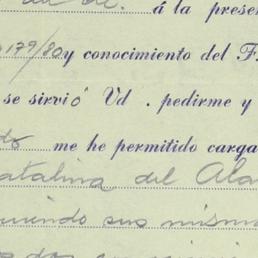 á la presen
179/80 y conocimiento del F
se sirvió Ud . pedirme y
me he permitido carga
atalina del Ala
sus mism